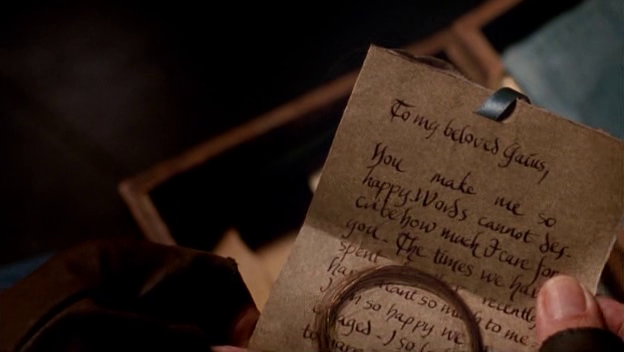 To my beloved Gaius,
You make me so
happy. Words cannot des-
cribe how much I care for
you. The times we ha
spent recently
ha meant so much to me
so happy we